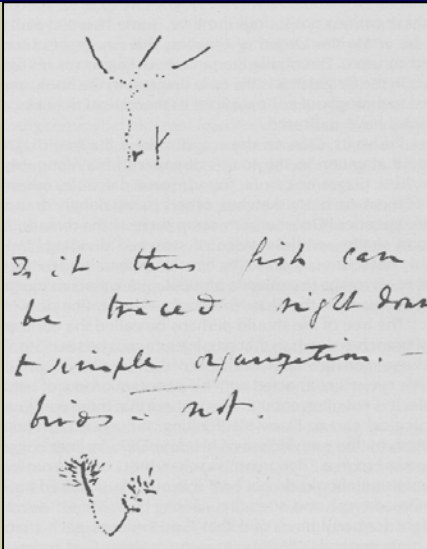 Is it thus fish can
be traced right down
to simple organization. —
birds not.